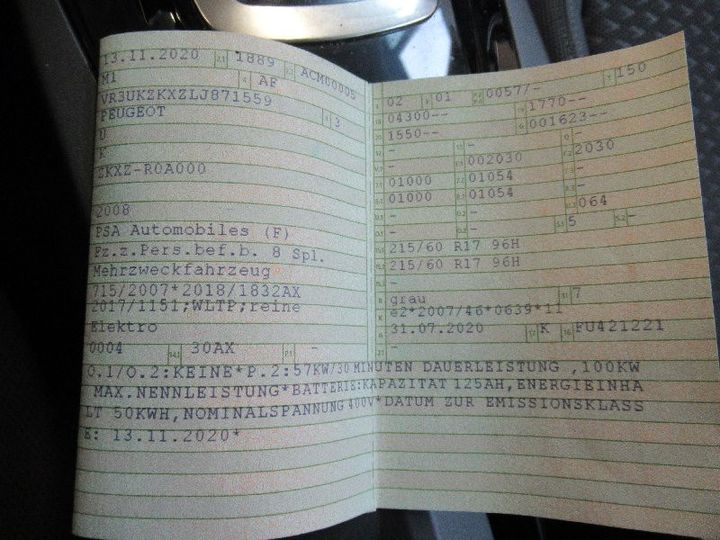 13.11.2020 1889 ACM00005
M1 AF
VR3UKZKXZLJ871559
PEUGEOT 3
U
K
ZKXZ-R0A000
2008
PSA Automobiles (F)
Fz.z.Pers.bef.b. 8 Spl.
Mehrzweckfahrzeug
715/2007*2018/1832AX
2017/1151;WLTP;reine
Elektro
0004 14.1 30AX P.1 -
02 01 00577- 150
04300-- 1770--
1550-- 001623--
- - -
- 002030 2030
01000 01054 -
01000 01054 -
- - 064
- - 5 -
215/60 R17 96H
215/60 R17 96H
-
grau 7
e2*2007/46*0639*11
31.07.2020 K FU421221
-
O.1/O.2:KEINE*P.2:57KW/30 MINUTEN DAUERLEISTUNG ,100KW
MAX.NENNLEISTUNG*BATTERIE:KAPAZITAT 125AH,ENERGIEINHA
LT 50KWH,NOMINALSPANNUNG 400V*DATUM ZUR EMISSIONSKLASS
E: 13.11.2020*